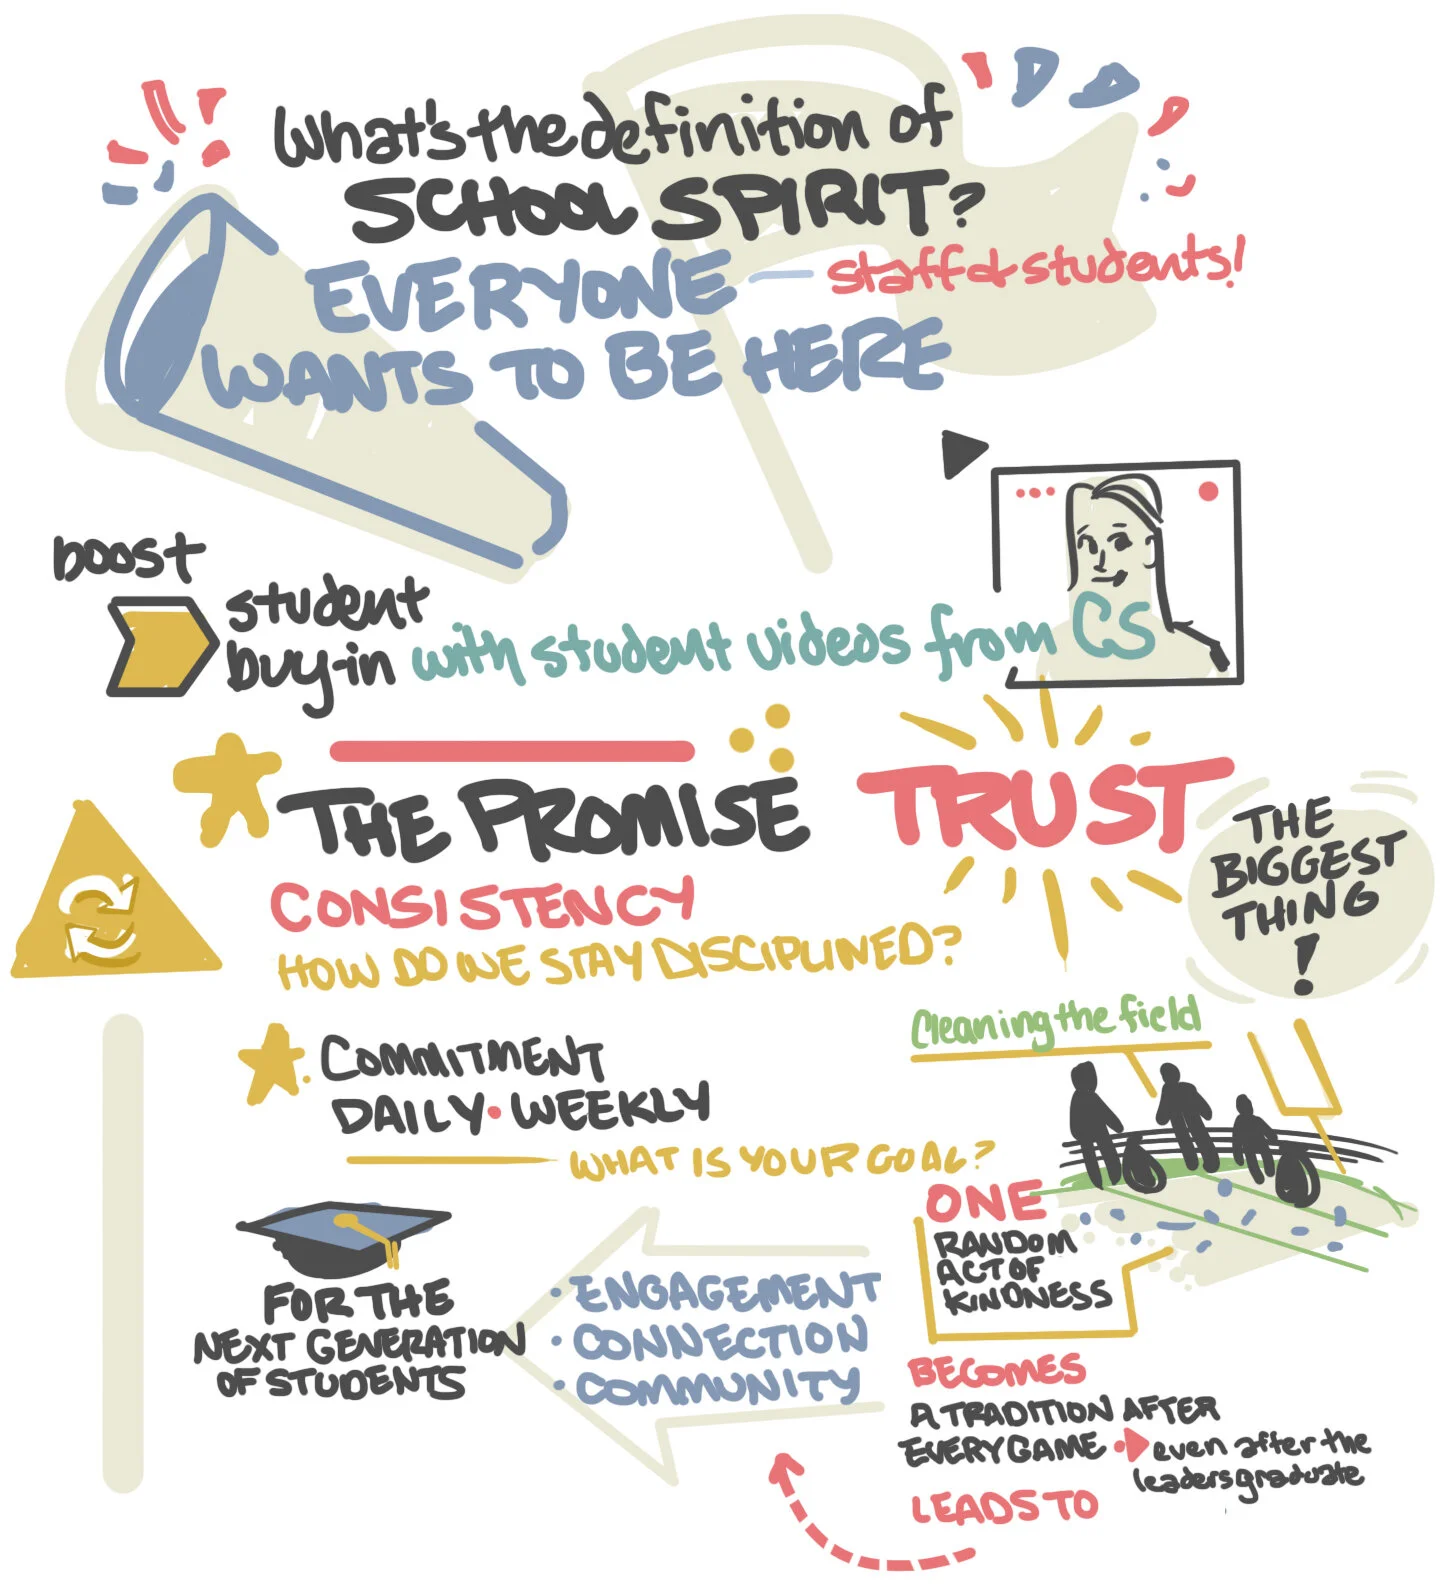 What's the definition of
SCHOOL SPIRIT?
EVERYONE — staff & students!
WANTS TO BE HERE
boost
student
buy-in with student videos from CS
THE PROMISE
CONSISTENCY
HOW DO WE STAY DISCIPLINED?
COMMITMENT
DAILY • WEEKLY
WHAT IS YOUR GOAL?
TRUST
THE
BIGGEST
THING
!
Cleaning the field
ONE
RANDOM
ACT OF
KINDNESS
BECOMES
A TRADITION AFTER
EVERY GAME • even after the
leaders graduate
LEADS TO
• ENGAGEMENT
• CONNECTION
• COMMUNITY
FOR THE
NEXT GENERATION
OF STUDENTS